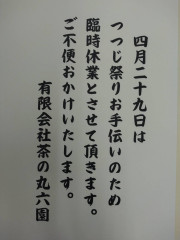 四月二十九日は
つつじ祭りお手伝いのため
臨時休業とさせて頂きます。
ご不便おかけいたします。
有限会社茶の丸六園